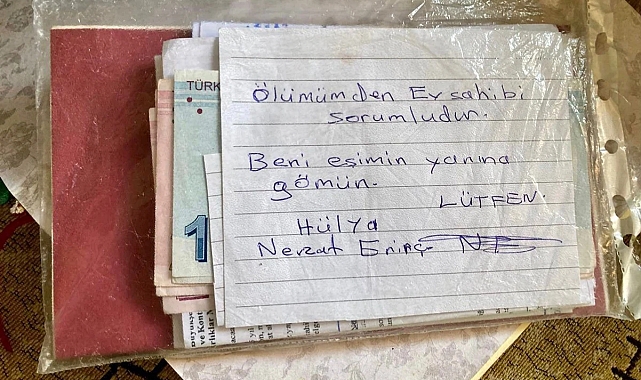 TÜRK
1
Ölümümden Ev sahibi
sorumludur.
Beni eşimin yanına
gömün.
LÜTFEN.
Hülya
Nevzat Erinç NE
ve Kont